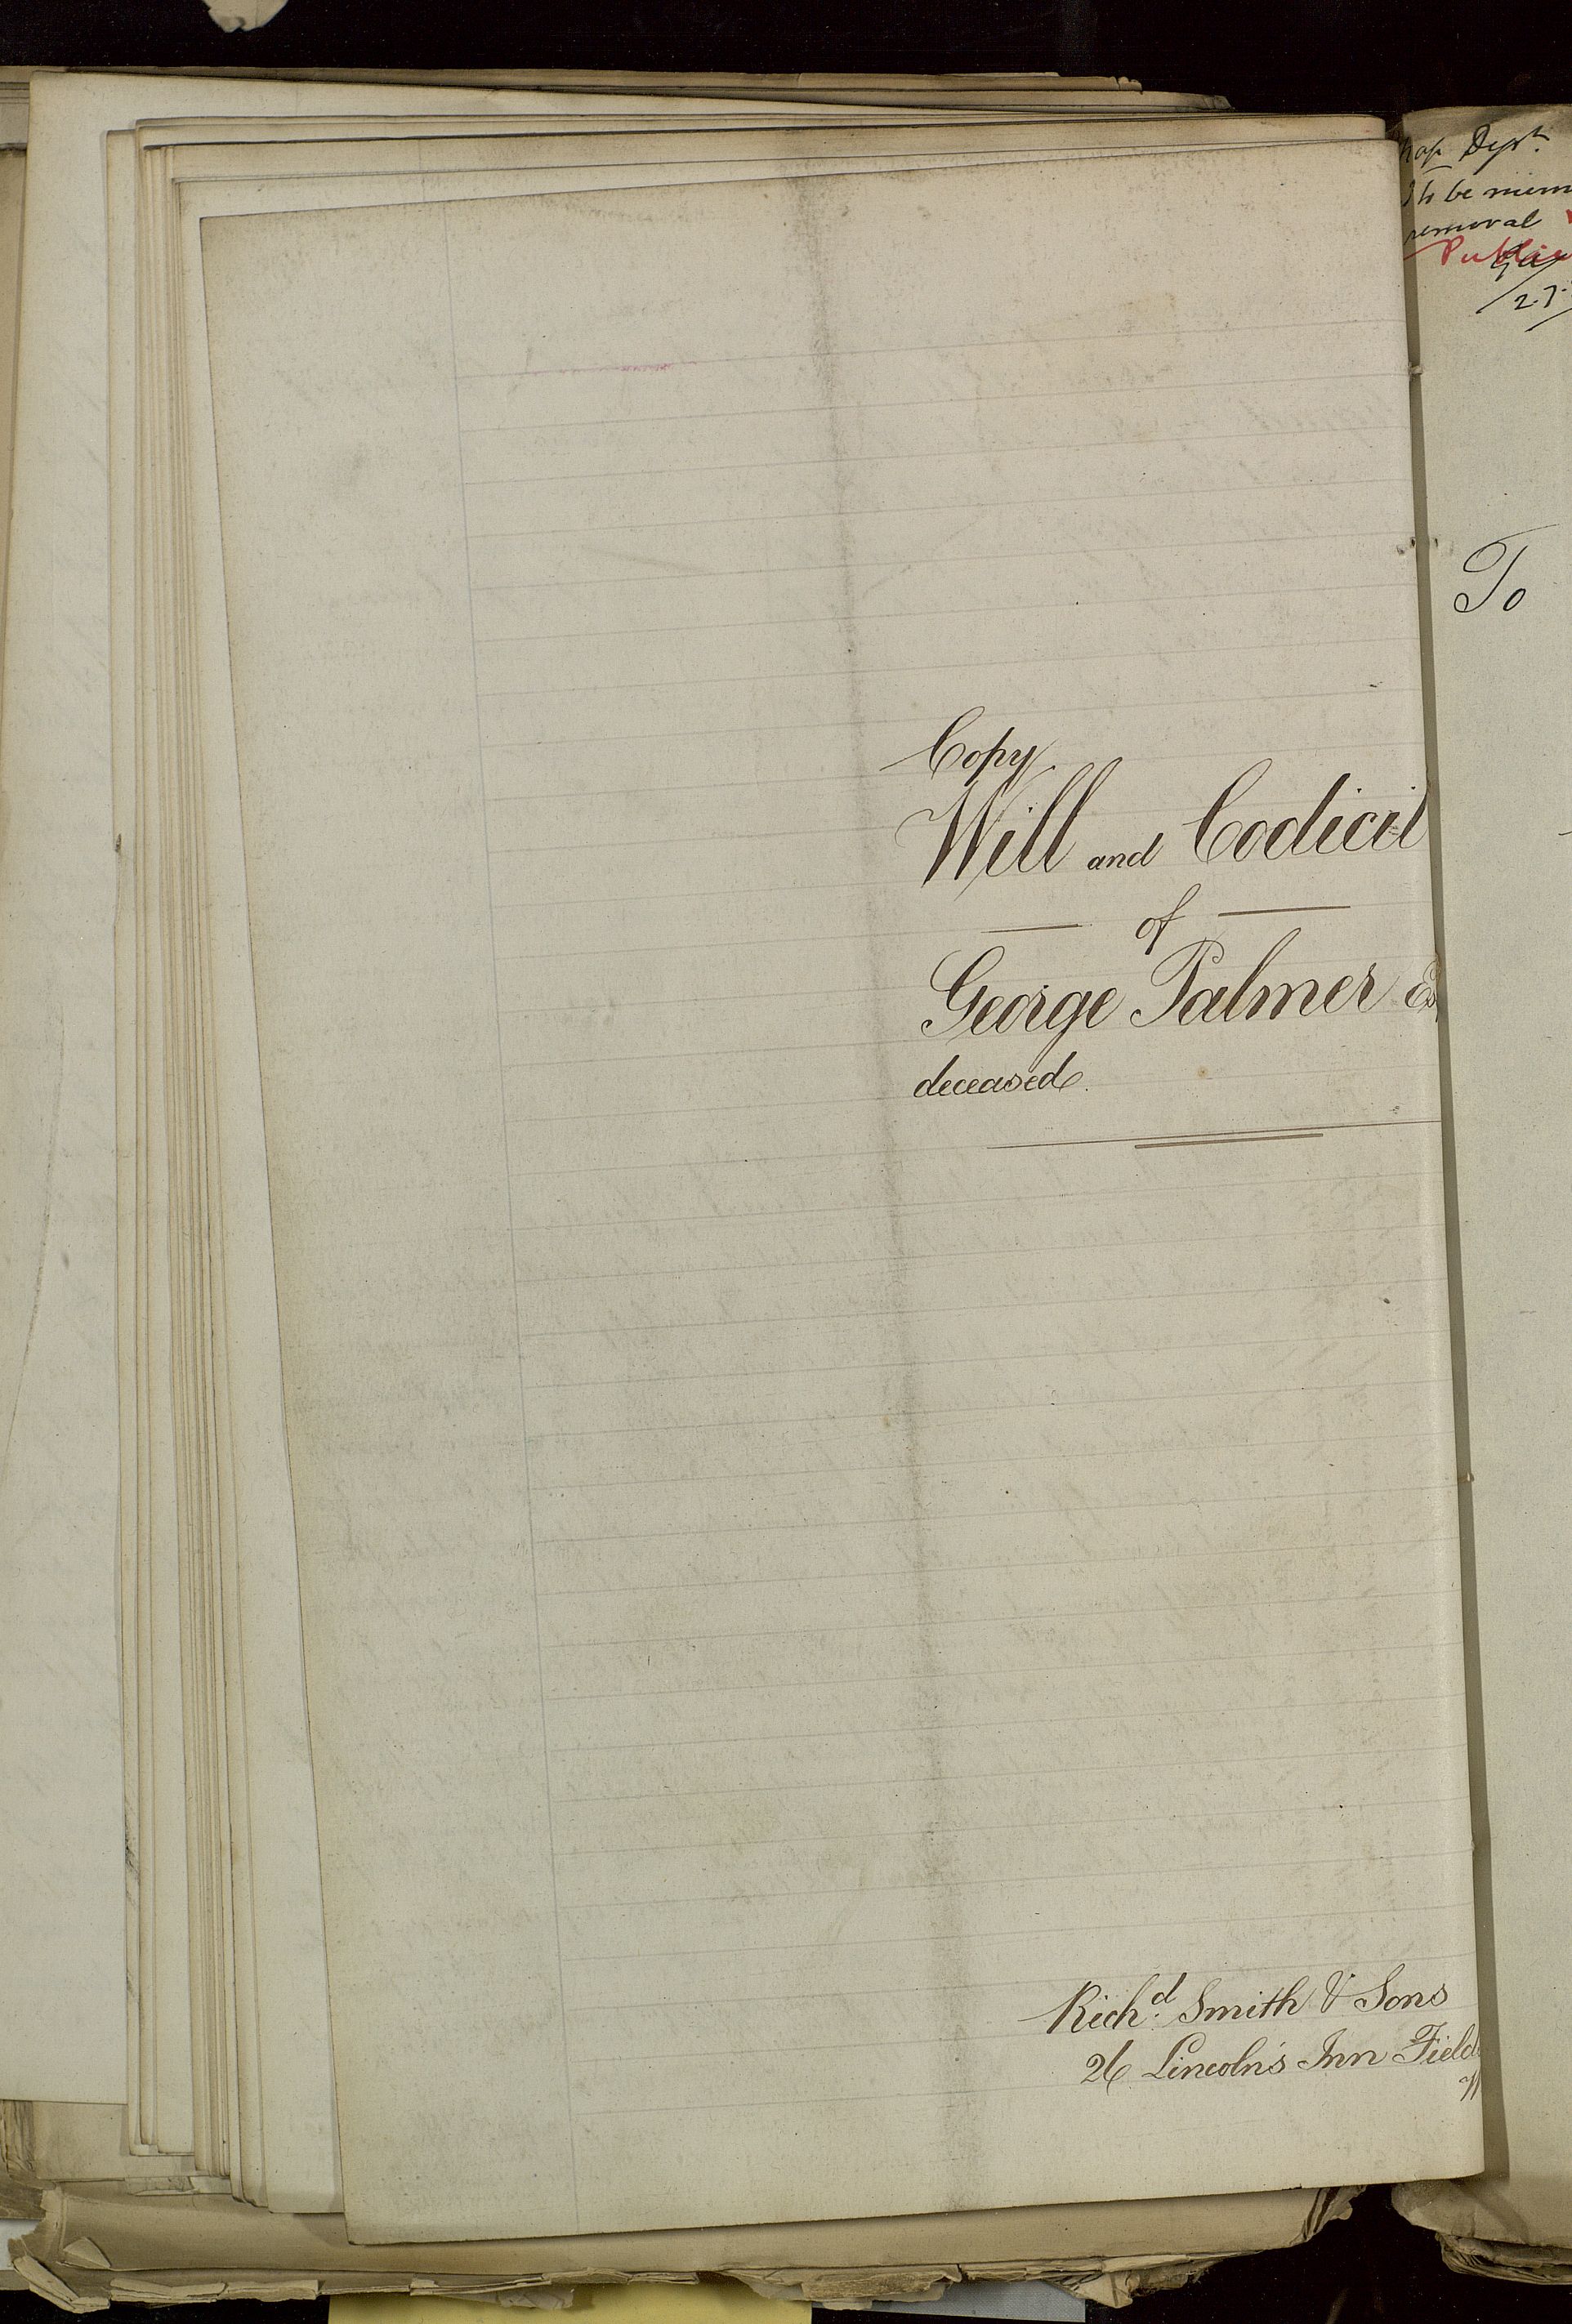 Copy
Will and Codicil
of
George Palmer Es
deceased.
Richd. Smith & Sons
26 Lincoln's Inn Field
Dept.
to be
removal
Public
27
To